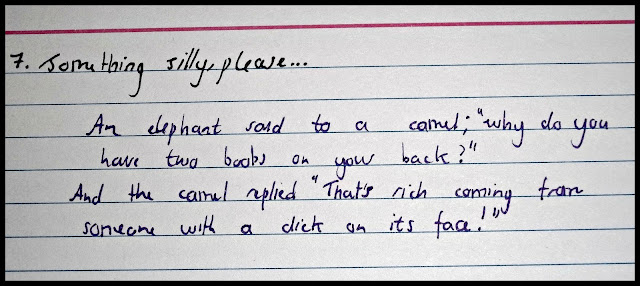 7. Something silly, please...
An elephant said to a camel; "why do you
have two boobs on your back?"
And the camel replied "That's rich coming from
someone with a dick on its face!"